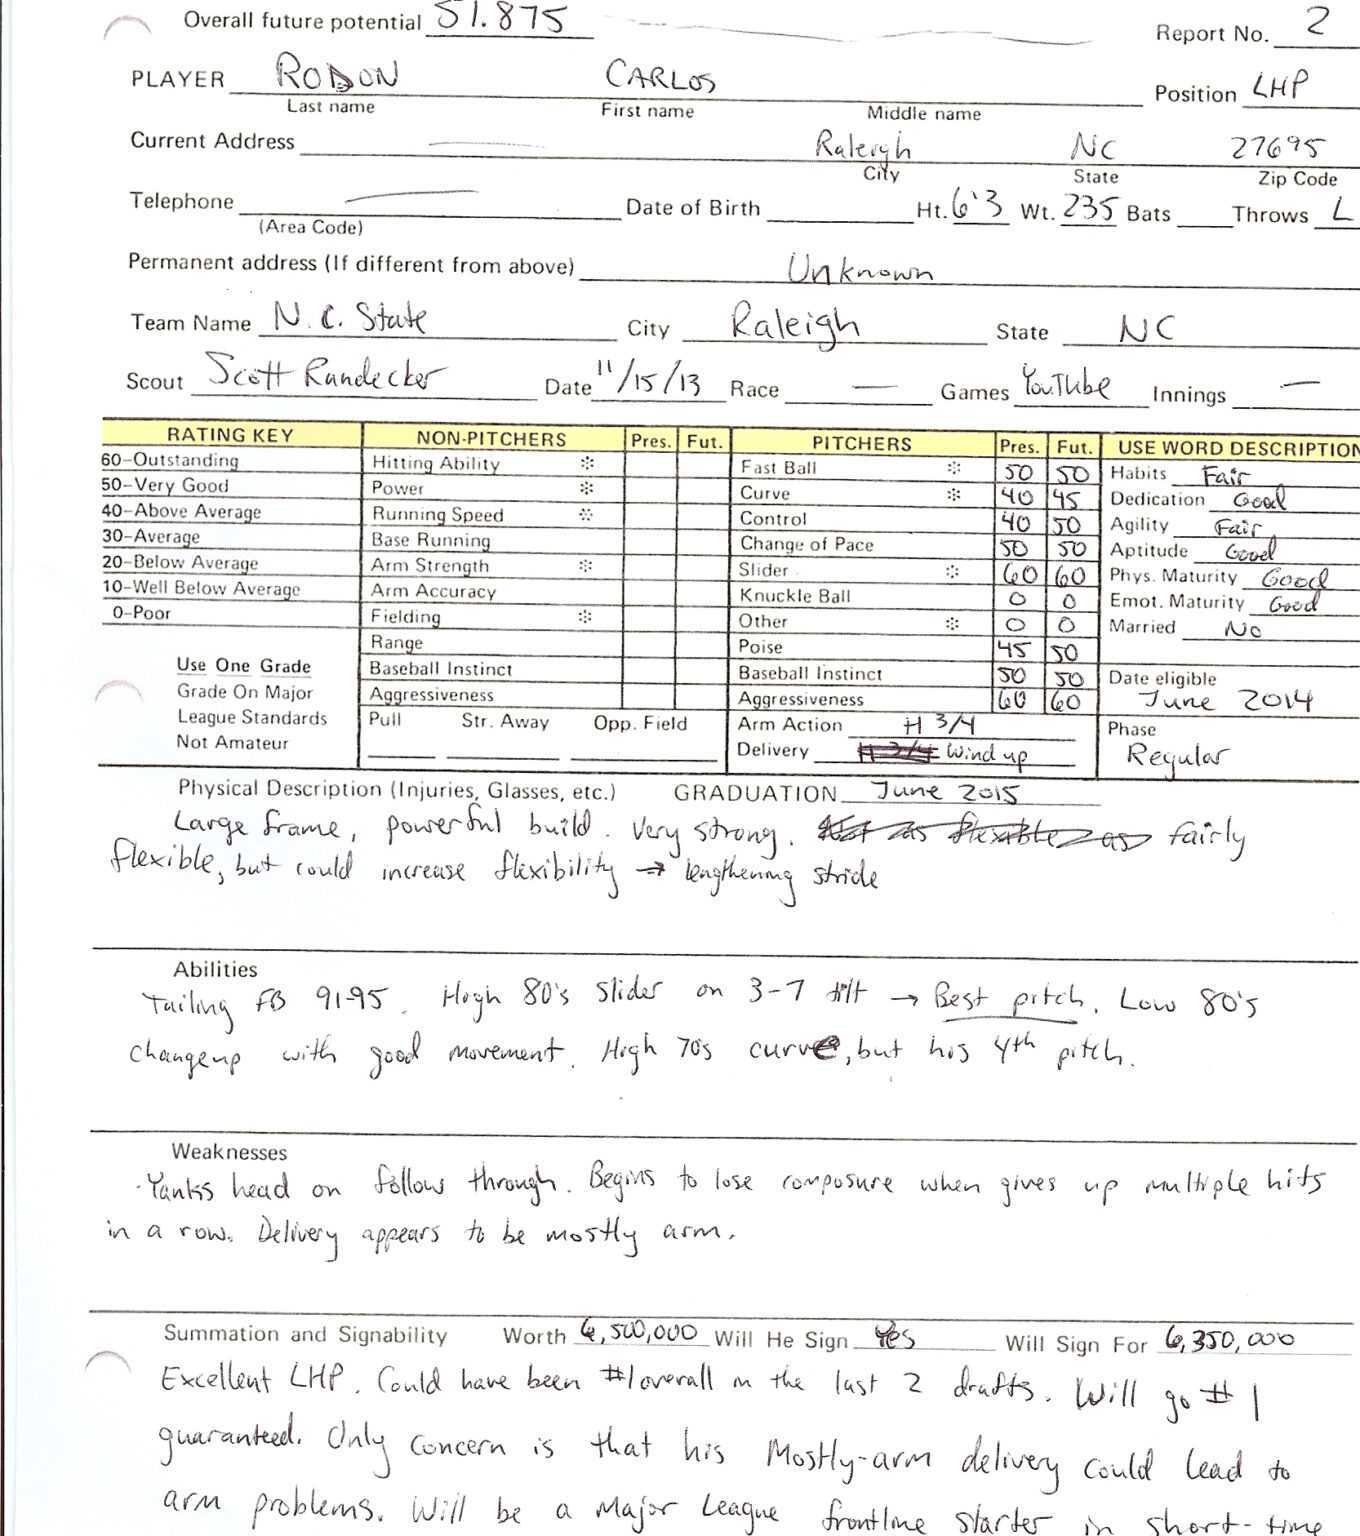 Overall future potential 51.875
Report No. 2
PLAYER RODON CARLOS Position LHP
Last name First name Middle name
Current Address Raleigh NC 27695
City State Zip Code
Telephone Date of Birth Ht. 6'3 Wt. 235 Bats Throws L
(Area Code)
Permanent address (If different from above) Unknown
Team Name N.C. State City Raleigh State NC
Scout Scott Randecker Date 11/15/13 Race — Games YouTube Innings —
RATING KEY NON-PITCHERS Pres. Fut. PITCHERS Pres. Fut. USE WORD DESCRIPTION
60-Outstanding Hitting Ability * Fast Ball * 50 50 Habits Fair
50-Very Good Power * Curve * 40 45 Dedication Good
40-Above Average Running Speed * Control 40 50 Agility Fair
30-Average Base Running Change of Pace 50 50 Aptitude Good
20-Below Average Arm Strength * Slider * 60 60 Phys. Maturity Good
10-Well Below Average Arm Accuracy Knuckle Ball 0 0 Emot. Maturity Good
0-Poor Fielding * Other * 0 0 Married No
Range Poise 45 50
Use One Grade Baseball Instinct Baseball Instinct 50 50 Date eligible
Grade On Major Aggressiveness Aggressiveness 60 60 June 2014
League Standards Pull Str. Away Opp. Field Arm Action H 3/4 Phase
Not Amateur Delivery H 3/4 Wind up Regular
Physical Description (Injuries, Glasses, etc.) GRADUATION June 2015
Large frame, powerful build. Very strong. Not as flexible as fairly
flexible, but could increase flexibility → lengthening stride
Abilities
Tailing FB 91-95. High 80's slider on 3-7 tilt → Best pitch. Low 80's
changeup with good movement. High 70s curve, but his 4th pitch.
Weaknesses
Yanks head on follow through. Begins to lose composure when gives up multiple hits
in a row. Delivery appears to be mostly arm.
Summation and Signability Worth 6,500,000 Will He Sign Yes Will Sign For 6,350,000
Excellent LHP. Could have been #1 overall in the last 2 drafts. Will go #1
guaranteed. Only concern is that his Mostly-arm delivery could lead to
arm problems. Will be a Major League frontline starter in short-time